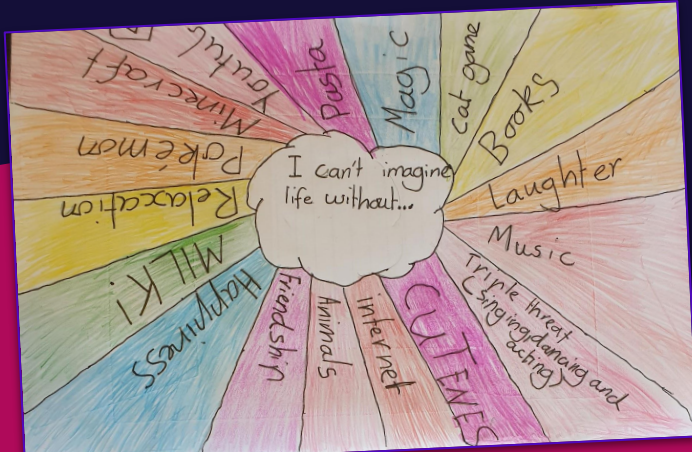 I can't imagine
life without...
Pasta
Magic
Cat game
Books
Laughter
Music
Triple threat
(singing, dancing and
acting)
CUTENES
internet
Animals
Friendship
Happiness
MILK!
Relaxcation
Pokémon
Minecraft
Youtub